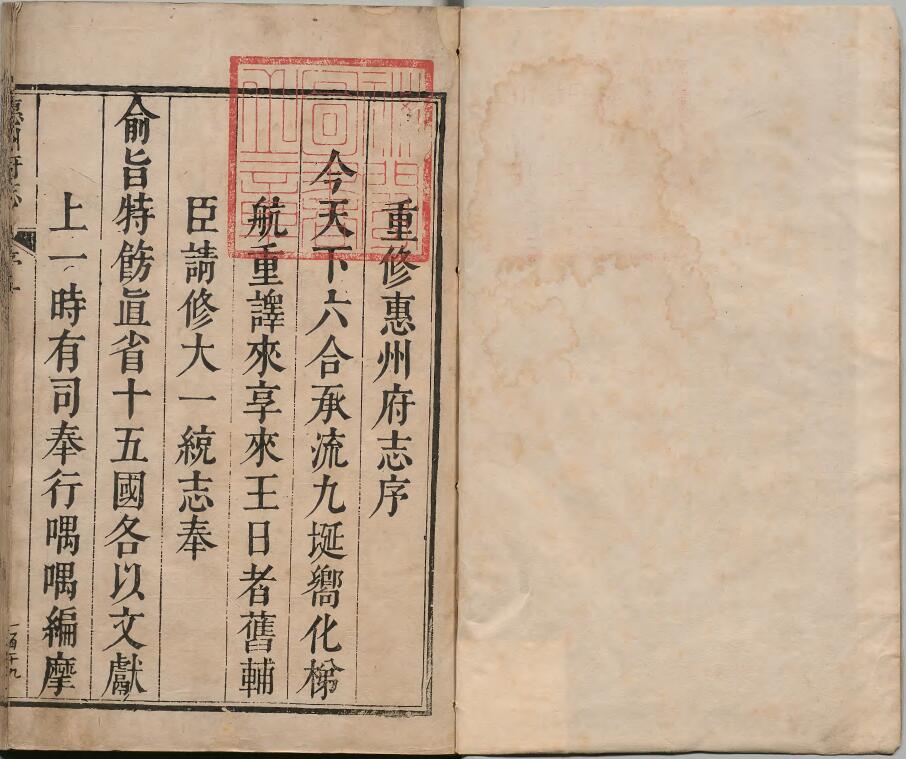 重修惠州府志序
今天下六合承流九埏嚮化梯
航重譯來享來王日者舊輔
臣請修大一統志奉
俞旨特飭直省十五國各以文獻
上一時有司奉行喁喁編摩
惠州府志